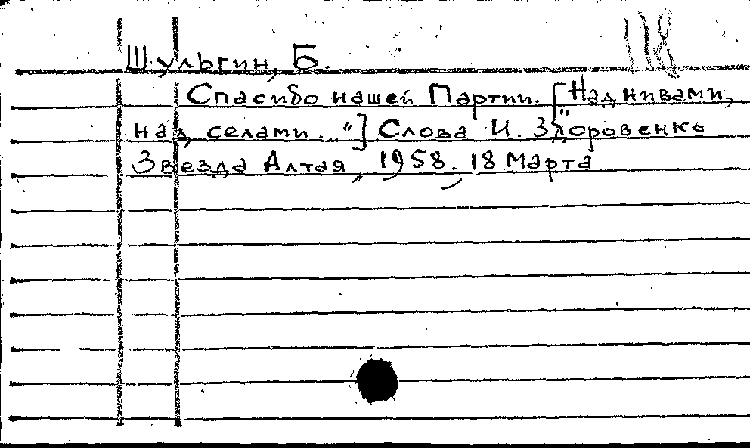 Шульгин, Б.
Спасибо нашей Партии. ["Над нивами,
над селами.."] Слова И. Здоровенко
Звезда Алтая, 1958. 18 Марта